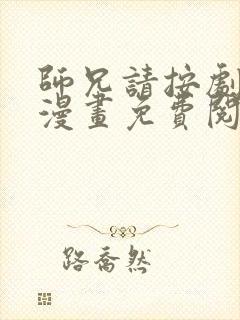 師兄請按劇
漫畫免費閱
路喬然